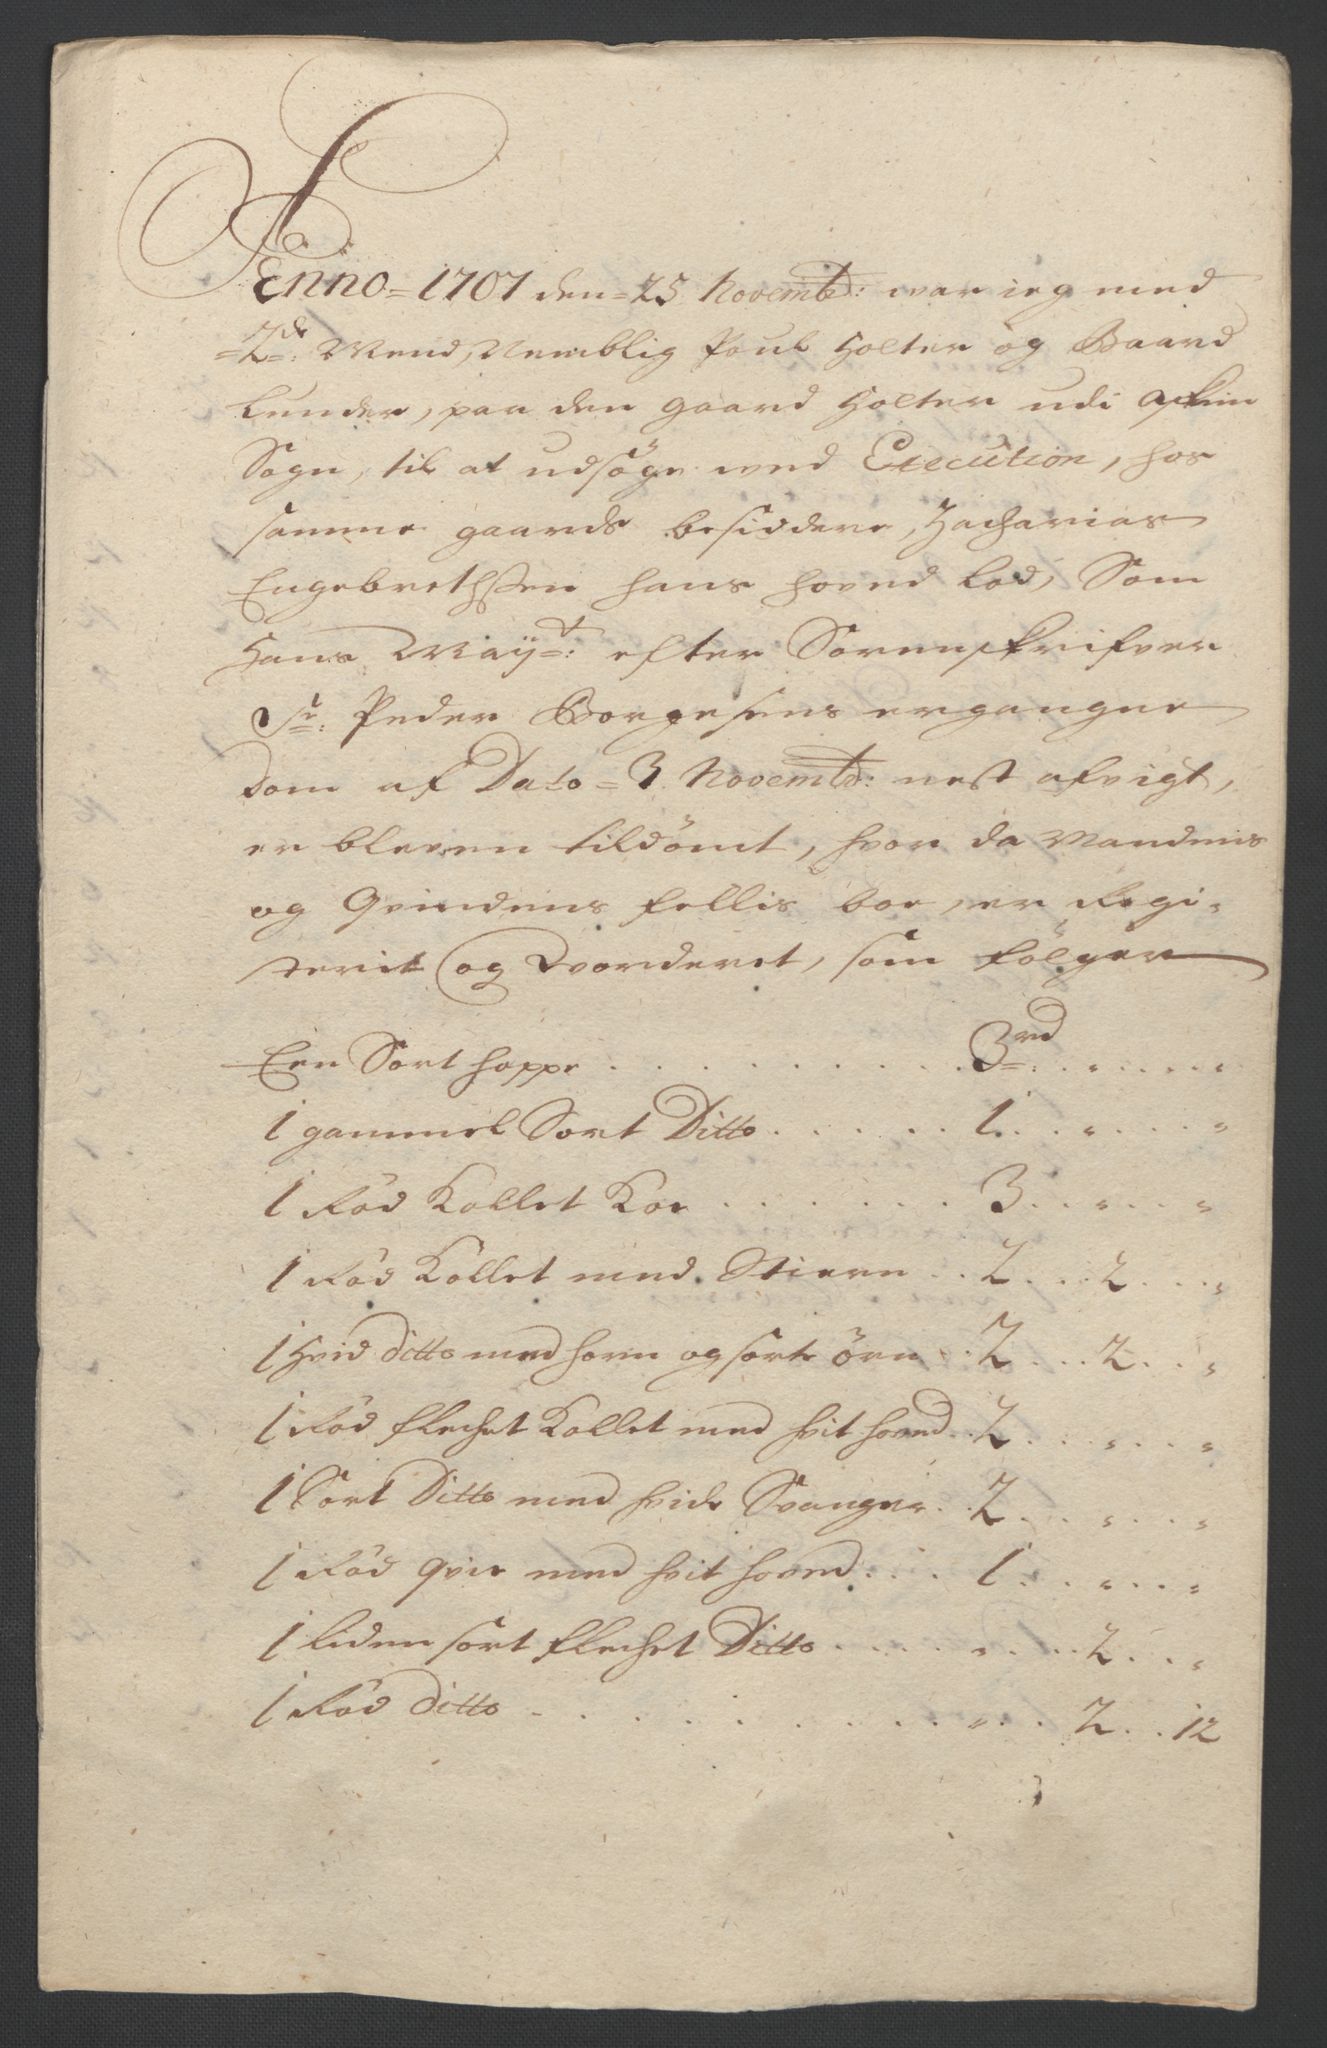 Anno = 1707 den = 25 Novembr: war ieg med
= 2de: Mend, Nemblig Poul Holter og Baard
Lunder, paa den gaard Holter udi Askim
Sogn, til at udsöge ved Execution, hos
samme gaards besiddere, Zacharias
Engebrethsen hans hoved lod, Som
Hans Mayt: efter Sorenskrifver
Sr: Peder Borgesens ergangne
dom af Dato = 3 Novembr: nest afvigt,
er bleven tildömt, hvor da Mandens
og Qvindens fellis boe, er Regi-
sterit og Vorderet, som fölger
Een Sort hoppe . . . 3 rd: . . „ . . „
1 gammel Sort Ditto . . . 1 . . „ . . „
1 Röd Kollet Koe . . . 3 . . „ . . „
1 Röd Kollet med Stiern . . 2 . . 2 . . „
1 Hvid ditto med horn og sorte örn . . 2 . . 2 . . „
1 Röd flechet Kollet med hvit hoved . . 2 . . „ . . „
1 Sort Ditto med hvide Svanger . . 2 . . „ . . „
1 Röd qvie med hvit hoved . . . 1 . . „ . . „
1 liden sort flechet Ditto . . . „ . . 2 . . „
1 Röd ditto . . . „ . . 2 . . 12